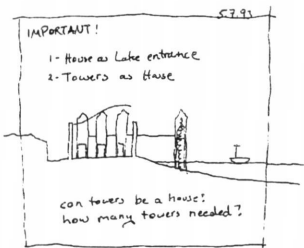 5.7.93
IMPORTANT!
1- House as Lake entrance
2- Towers as House
can towers be a house?
how many towers needed?